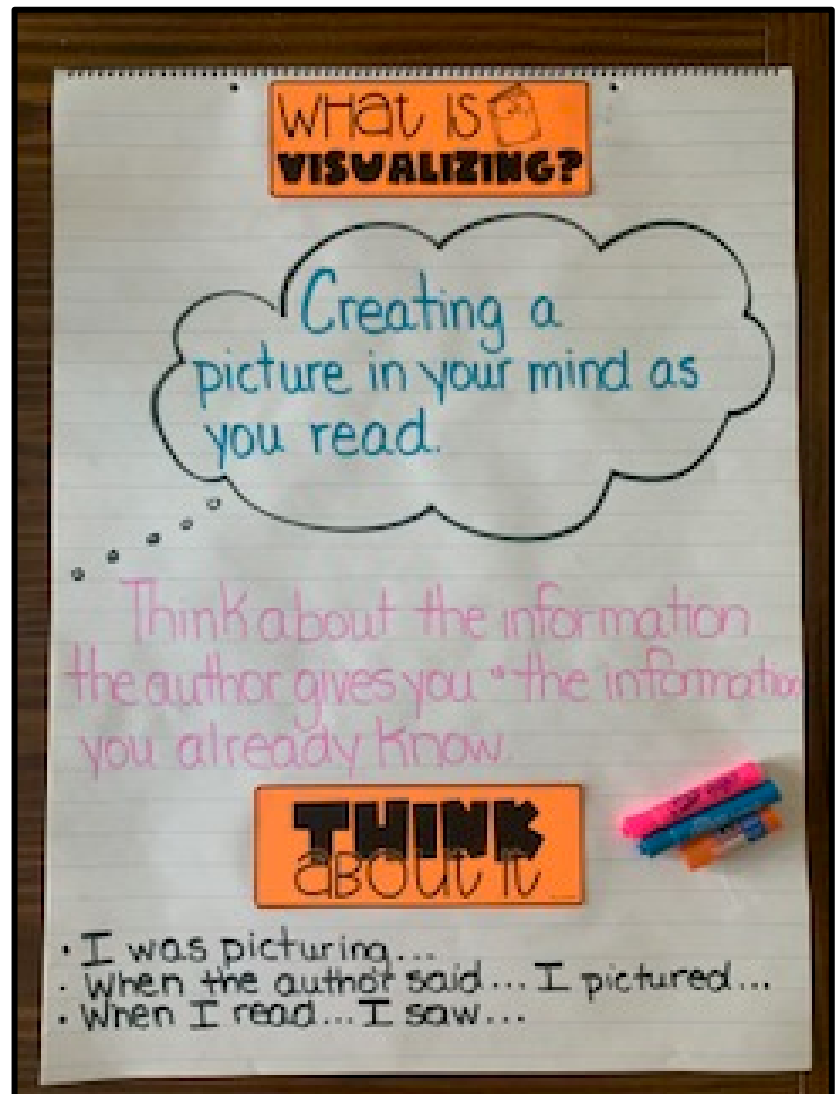 What is
VISUALIZING?
Creating a
picture in your mind as
you read.
Think about the information
the author gives you + the information
you already know.
THINK
about it...
• I was picturing...
• When the author said... I pictured...
• When I read... I saw...